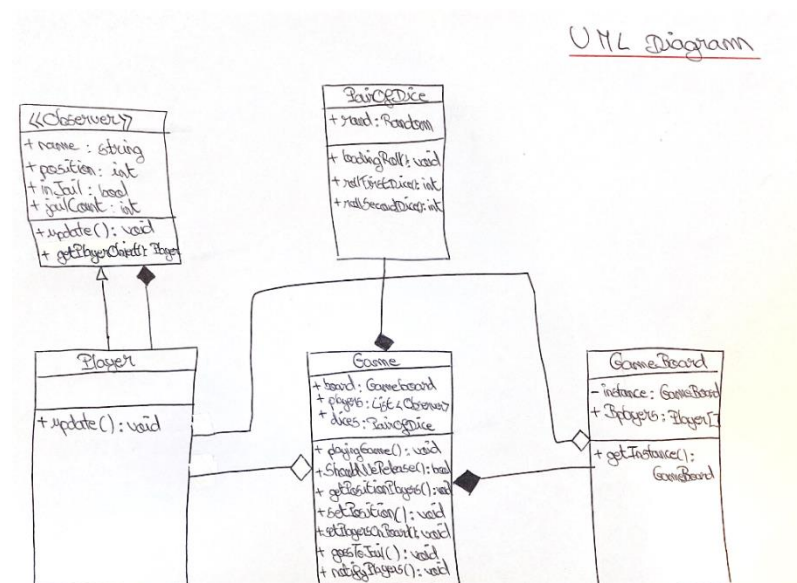 UML Diagram
<<Observer>>
+ name : string
+ position : int
+ inJail : bool
+ jailCount : int
+ update() : void
+ getPlayerObject(): Player
PairOfDice
+ rand : Random
+ loadingRoll(): void
+ rollFirstDice(): int
+ rollSecondDice(): int
Player
+ update() : void
Game
+ board : GameBoard
+ players : List<Observer
+ dices : PairOfDice
+ playingGame() : void
+ ShouldWeRelease(): bool
+ getPositionPlayers(): void
+ setPosition() : void
+ setPlayersOnBoard(): void
+ goesToJail() : void
+ notifyPlayers() : void
GameBoard
- instance : GameBoard
+ Bplayers : Player[]
+ getInstance() :
GameBoard